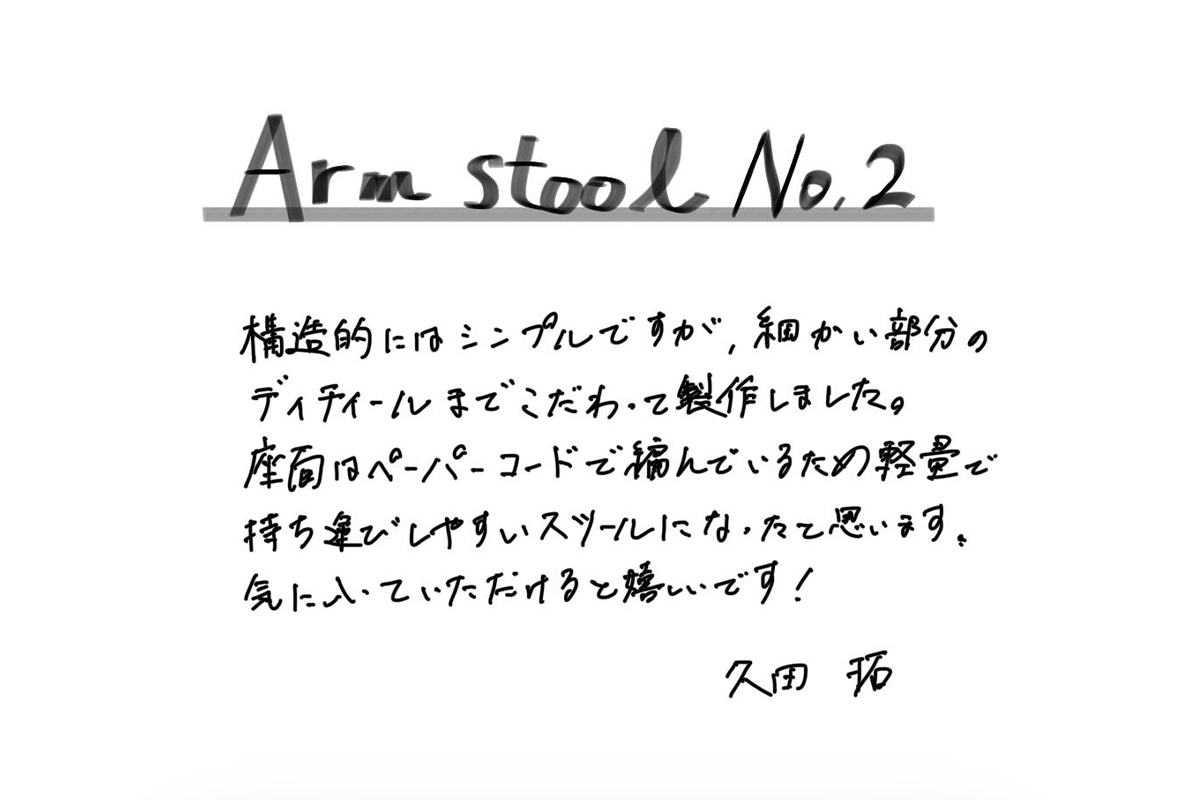 Arm stool No.2
構造的にはシンプルですが,細かい部分の
ディティールまでこだわって製作しました。
座面はペーパーコードで編んでいるため軽量で
持ち運びしやすいスツールになったと思います。
気に入っていただけると嬉しいです!
久田 拓